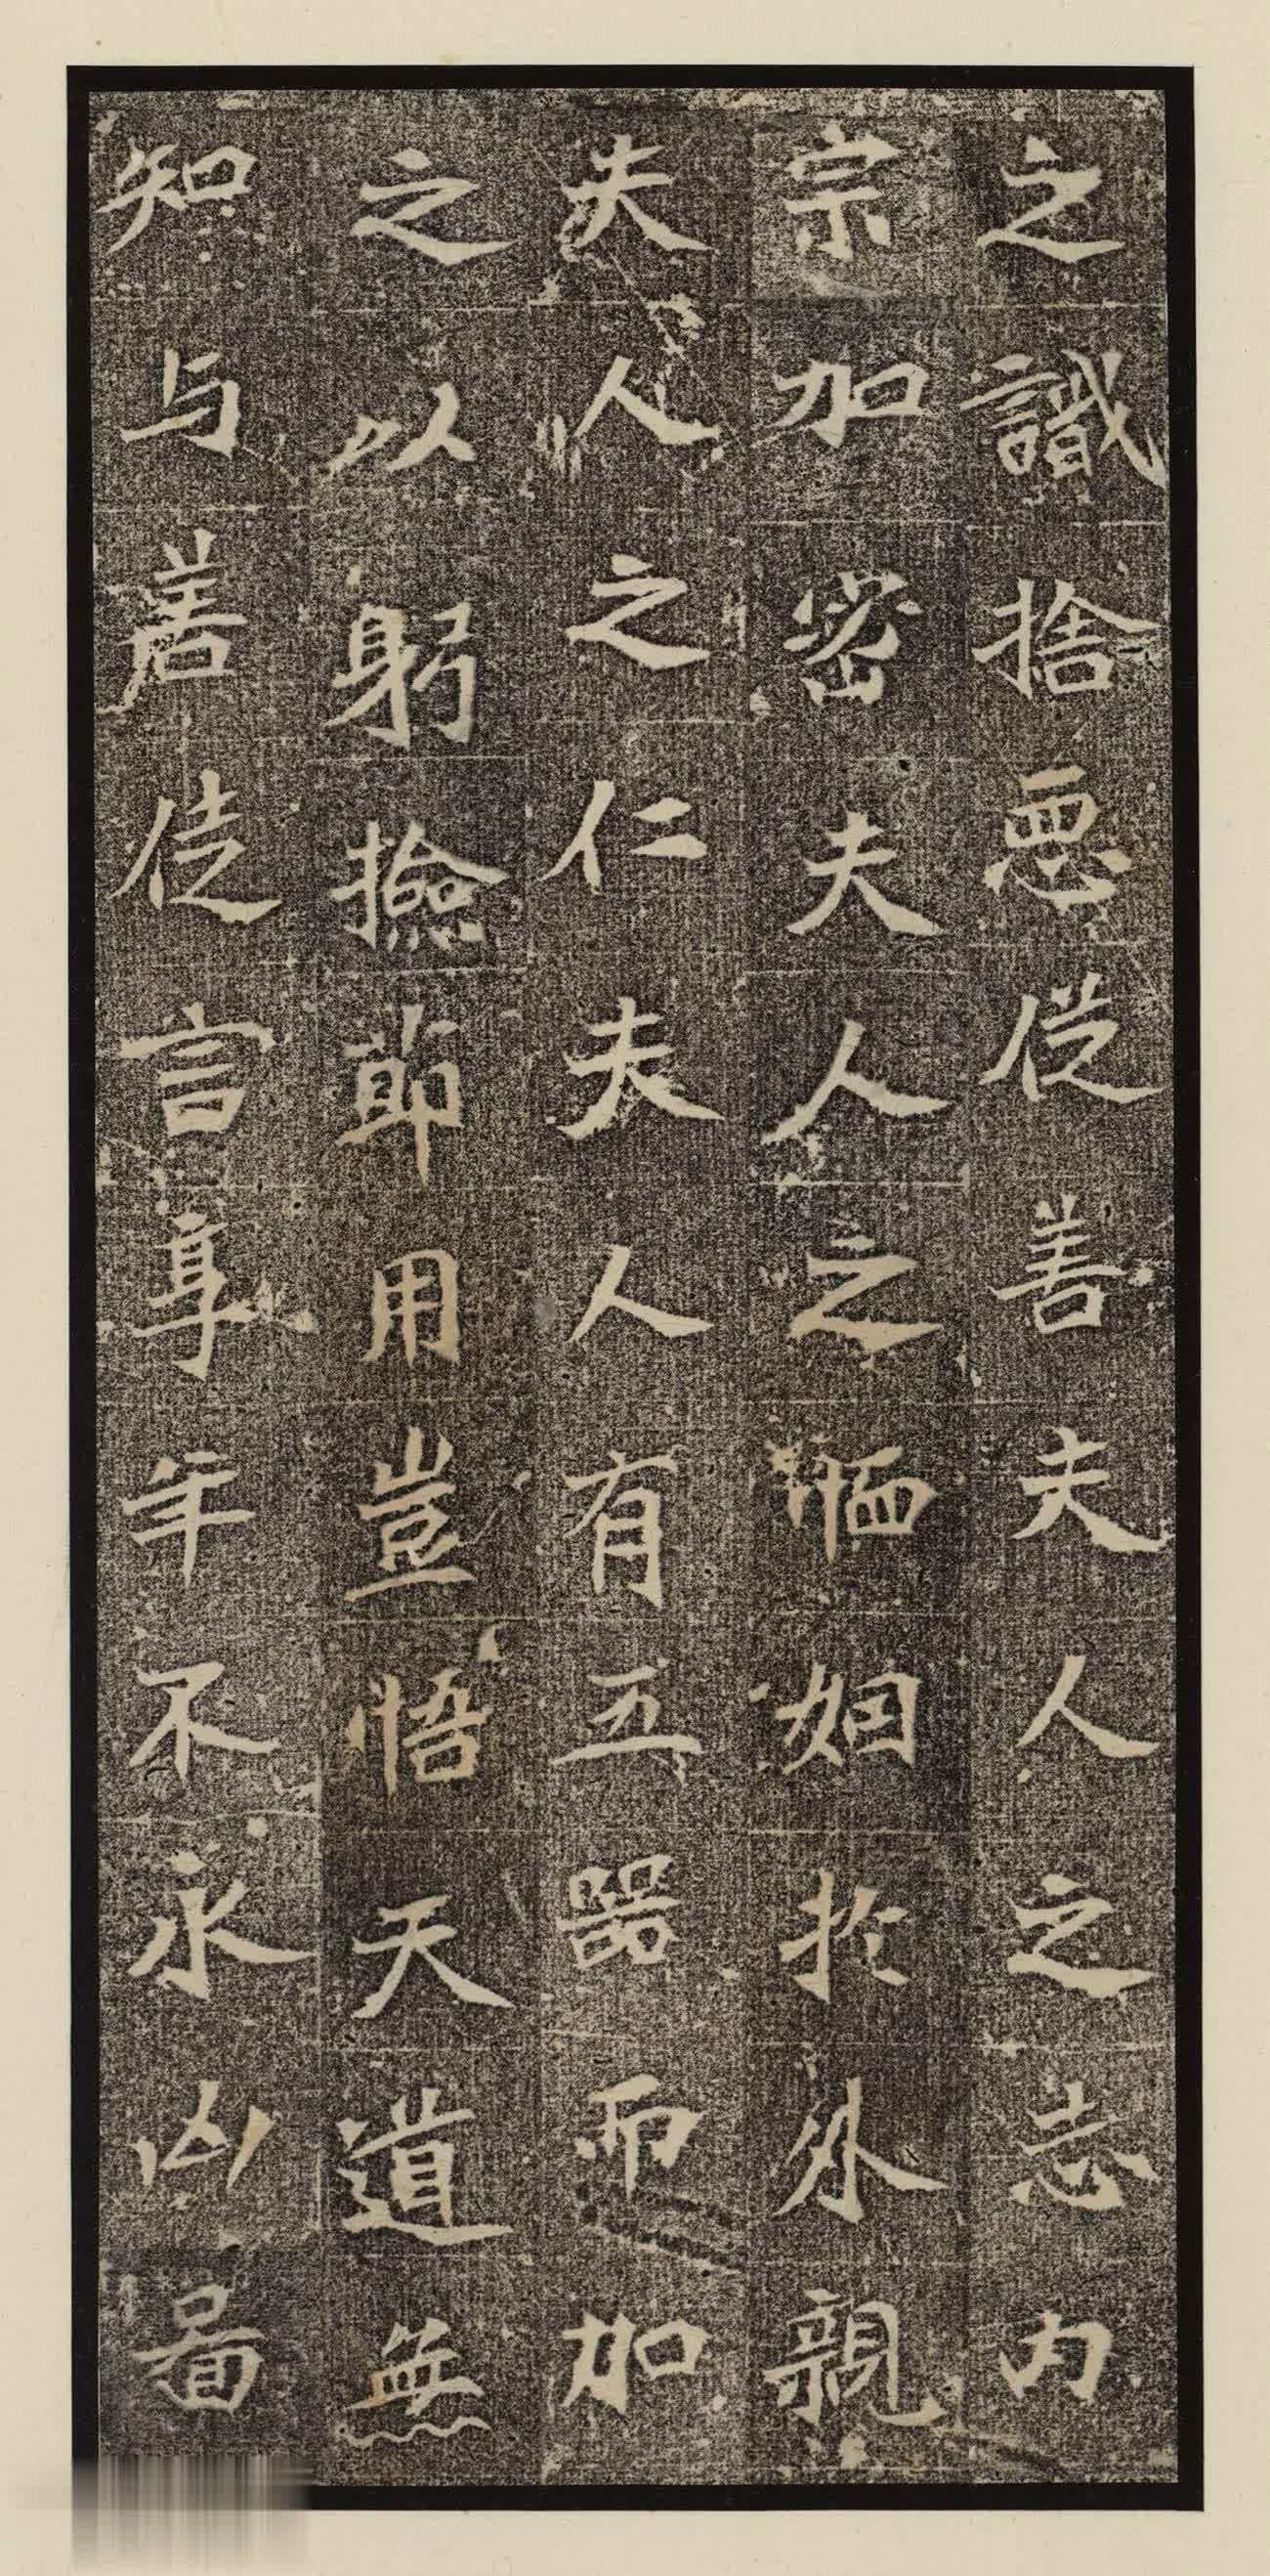 之識捨惡從善夫人之志內
宗加密夫人之恤姻扵外親
夫人之仁夫人有五器而加
之以躬撿節用豈悟天道無
知与善徒言享年不永凶啚